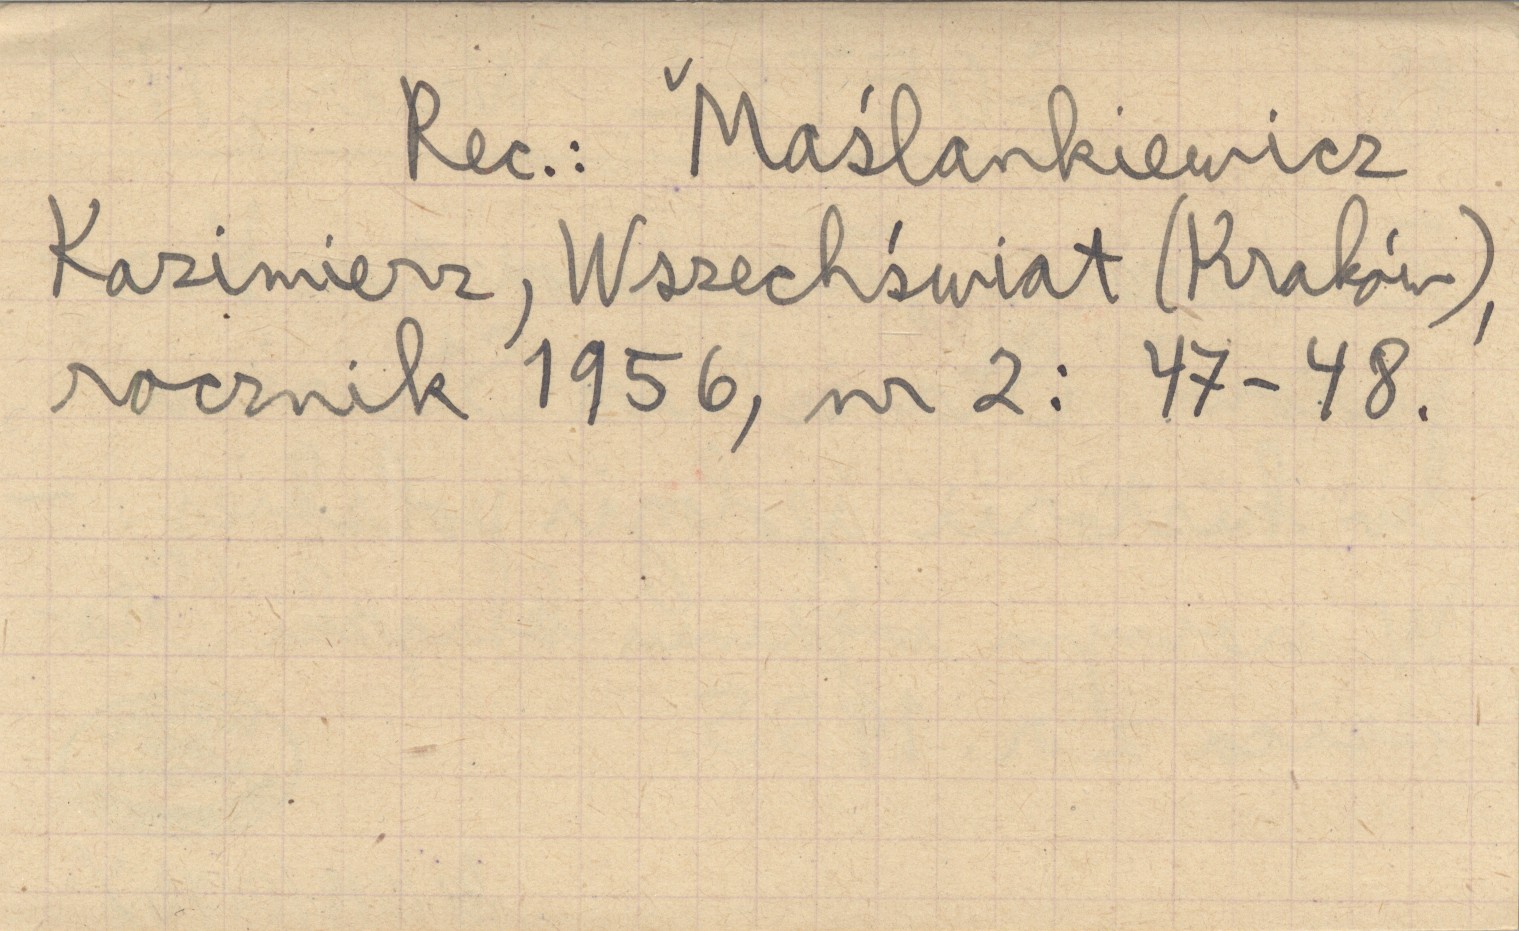 Rec.: Maślankiewicz
Kazimierz, Wszechświat (Kraków),
rocznik 1956, nr 2: 47-48.